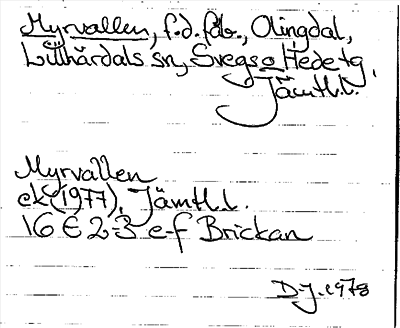 Myrvallen, f.d.fdb., Olingdal,
Lillhärdals sn, Svegs o Hede tg,
Jämtl.l.
Myrvallen
ek (1977), Jämtl.l.
16 E 2-3 e-f Brickan
DJ. 1978